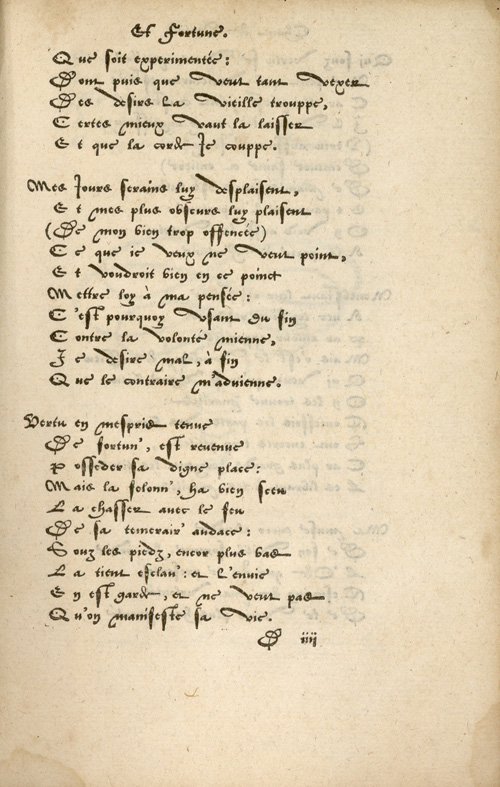 Et Fortune.
Que soit experimentée:
Dont puis que veut tant vexer
Des desirs la vieille trouppe,
Certes mieux vaut la laisser
Et que la corde Je couppe.
Mes Jours serains luy desplaisent,
Et mes plus obscurs luy plaisent
(De mon bien trop offencée)
Ce que ie veux ne veut point,
Et voudroit bien en ce poinct
Mettre loy à ma pensée:
C'est pourquoy vsant du fin
Contre la volonté mienne,
Je desire mal, à fin
Que le contraire m'aduienne.
Vertu en mespris tenue
De fortun', est reuenue
Posseder sa digne place:
Mais la felonn', ha bien sceu
La chasser avec le feu
De sa temerair' audace:
Souz les piedz, encor plus bas
La tient esclau': et l'enuie
En est garde, et ne veut pas
Qu'on manifeste sa vie.
D iiij